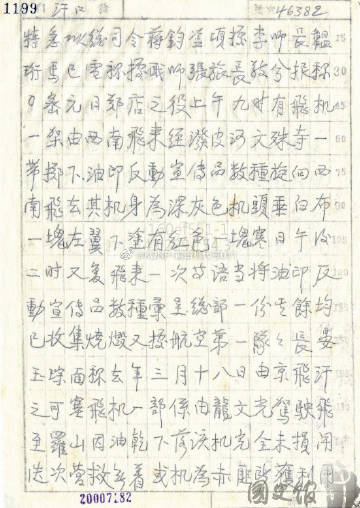 1199
汗口
46382
特急 总司令蒋钧鉴顷据李师长韫
珩马巳電称据职师張旅長敬兮报称
9 密元日郑店之役上午九时有飛机
一架由西南飛来經潑皮河文殊寺一
帶擲下油印反動宣傳品数種旋向西
南飛去其机身為深灰色机頭垂白布
一塊左翼下塗有紅色一塊寒日午后
二时又复飛来一次等语当将油印反
動宣傳品数種彙呈總部一份其餘均
已收集燒燬又据航空第一隊隊長晏
玉琮面称去年三月十八日由京飛汗
之可塞飛机一部係由龍文光駕駛飛
至羅山因油乾下落该机完全未損用
迭次营救無着或机為赤匪所獲利用
20007182
國史館